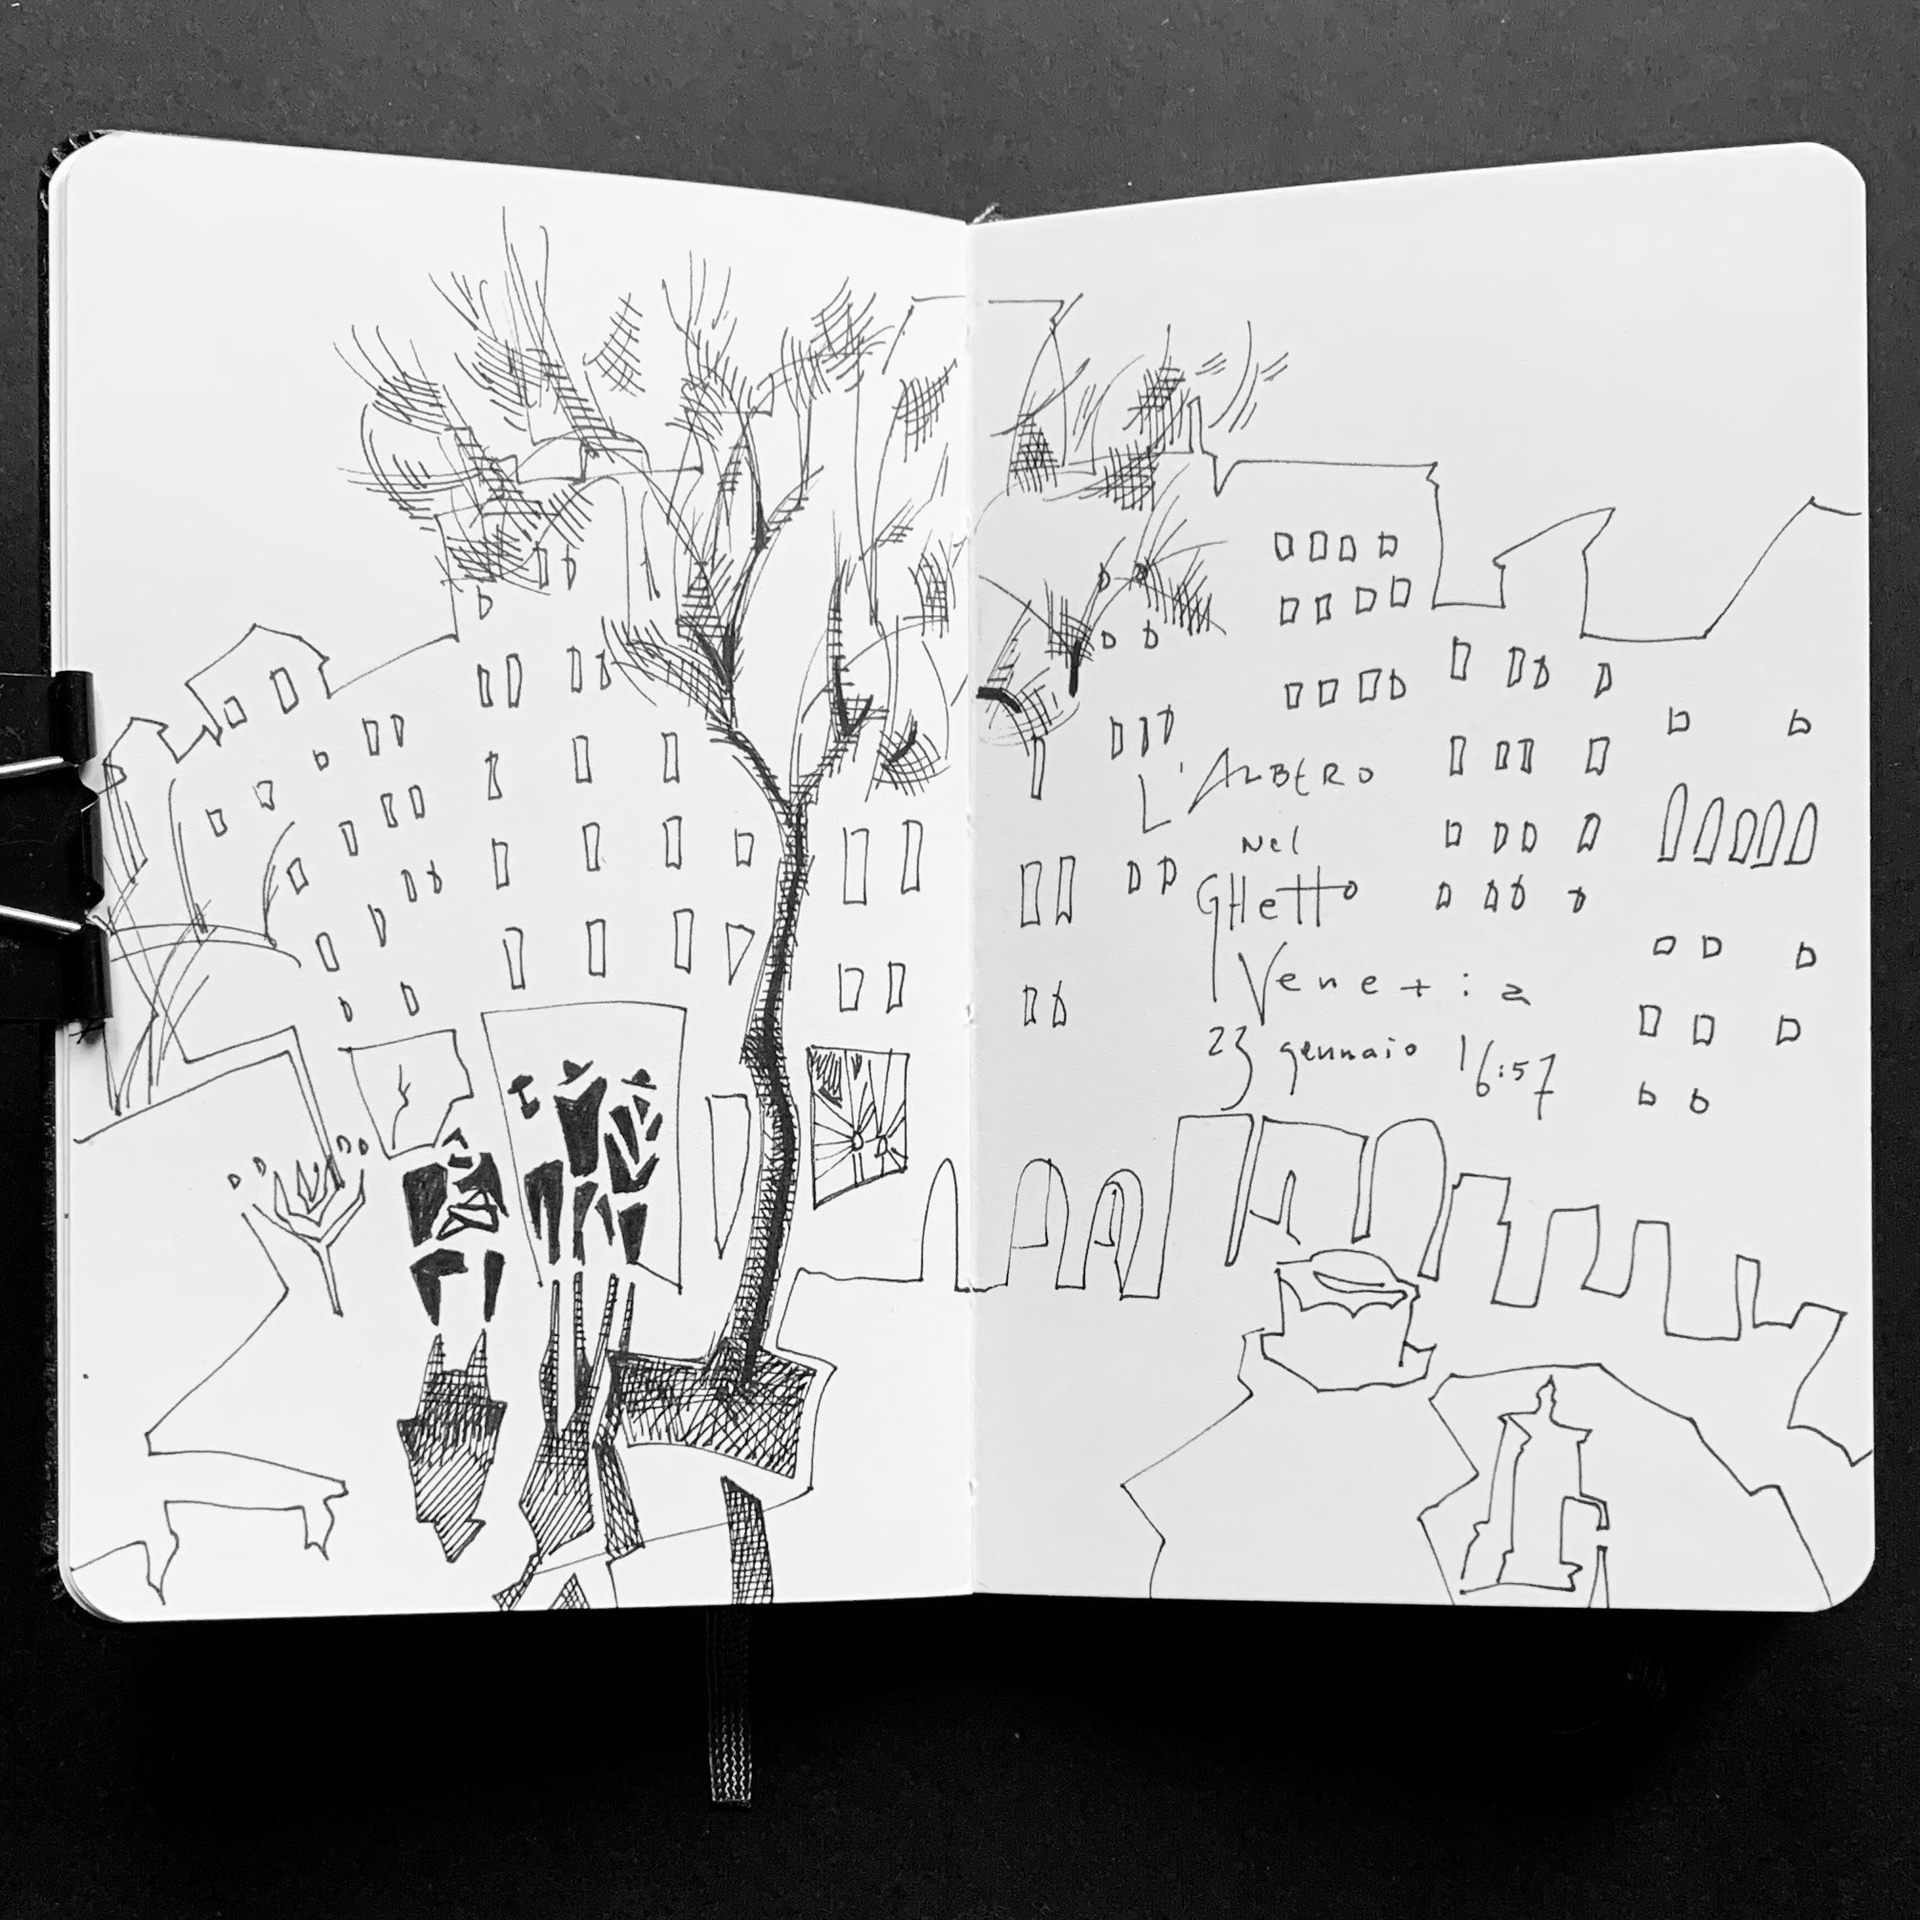 L'ALBERO
Nel
GHetto
Venezia
23 gennaio 16:57